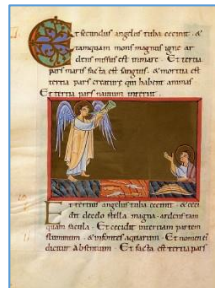 Et secundus angelus tuba cecinit. &
tamquam mons magnus igne ar
dens missus est in mare. Et tertia
pars maris facta est sanguis. & mortua est
tertia pars creaturę que habent animas
Et tertia pars navium interiit.
Et tertius angelus tuba cecinit. & ceci
dit de celo stella magna. ardens tam
quam facula. Et cecidit in tertiam partem
fluminum. & in fontes aquarum. Et nomen
dicitur absinthium. Et facta est tertia pars